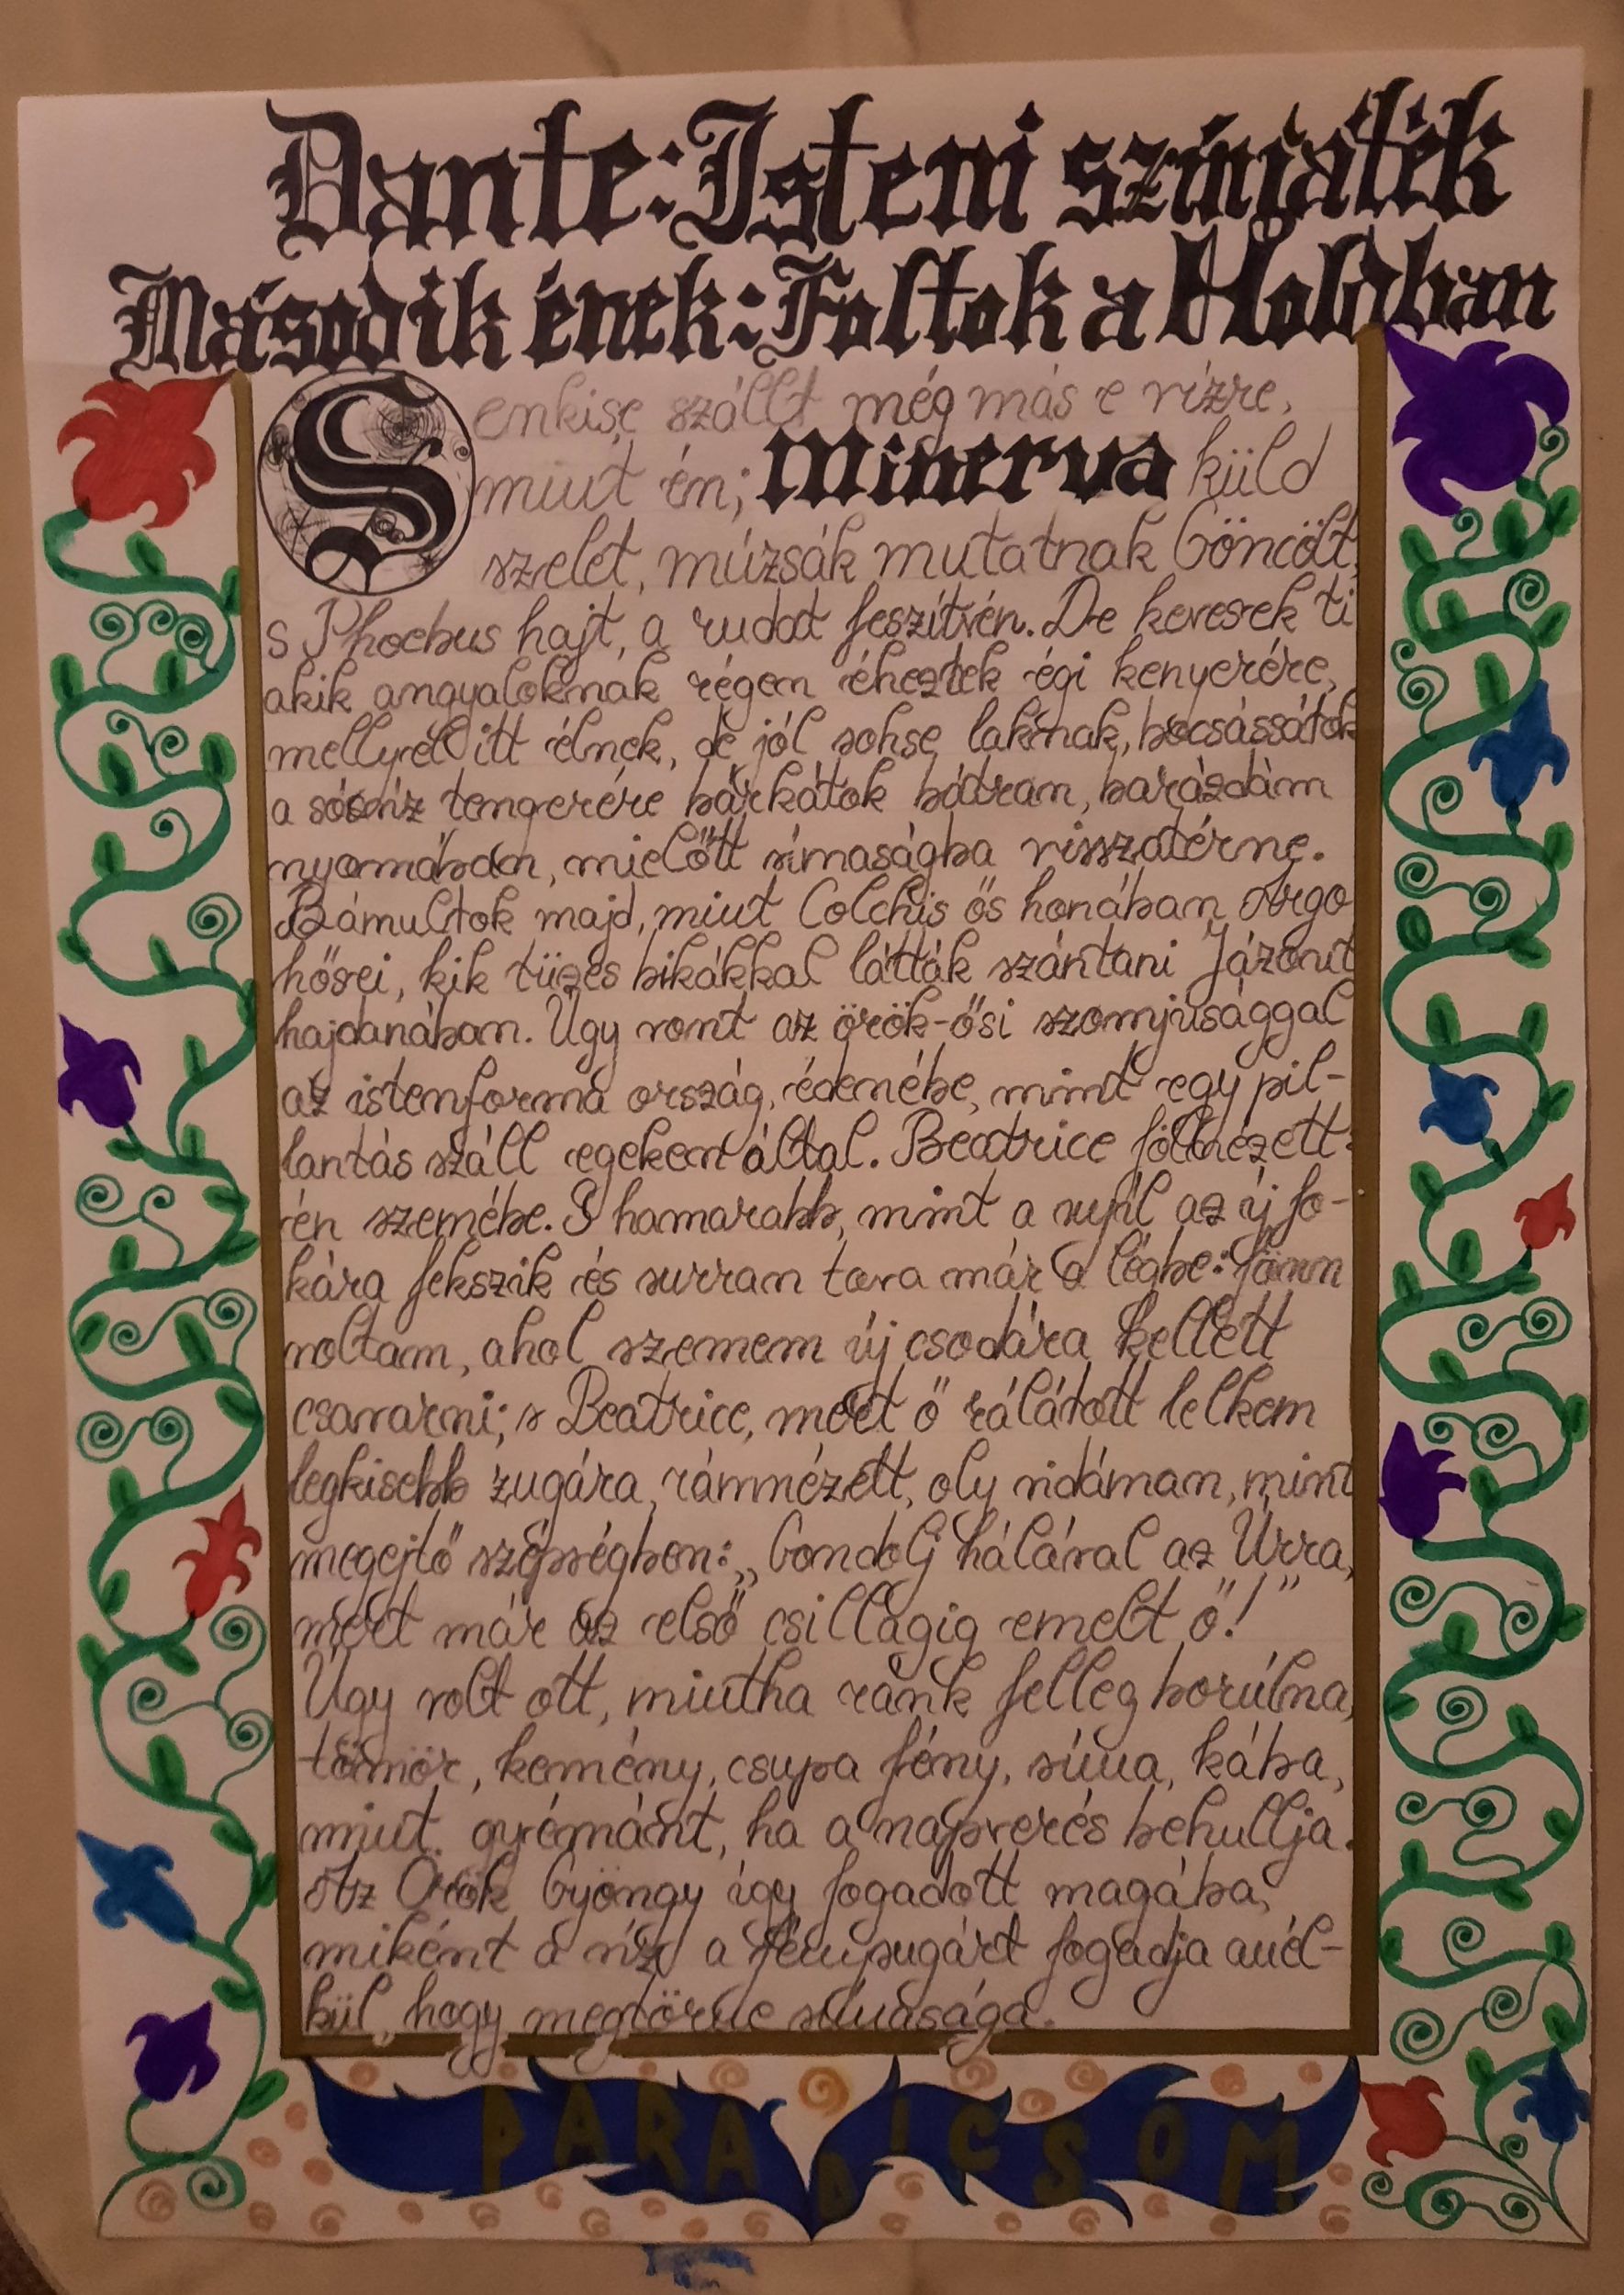 Dante: Isteni színjáték
Második ének: Foltok a Holdban
Senkise szállt még más e vízre,
mint én; Minerva küld
szelet, múzsák mutatnak Göncölt,
s Phoebus hajt, a rudat feszítvén. De kevesek ti
akik angyaloknak régen éheztek égi kenyerére,
mellyel itt élnek, de jól sohse laknak, bocsássátok
a sósvíz tengerére bárkátok bátran, barázdám
nyomában, mielőtt símaságba visszatérne.
Bámultok majd, mint Colchis ős honában Argo
hősei, kik tüzes bikákkal látták szántani Jázont
hajdanában. Úgy vont az örök-ősi szomjúsággal
az istenforma ország, édenébe, mint egy pil-
lantás száll egeken által. Beatrice fölnézett:
én szemébe. S hamarabb, mint a nyíl az íj fo-
kára fekszik és surran tova már a légbe: fönn
voltam, ahol szemem új csodára kellett
csavarni; s Beatrice, mert ő rálátott lelkem
legkisebb zugára, rámnézett, oly vidáman, mint
megejtő szépségben: „Gondolj hálával az Úrra,
mert már az első csillagig emelt ő!”
Úgy volt ott, mintha ránk felleg borúlna,
tömör, kemény, csupa fény, síma, kába,
mint gyémánt, ha a napverés behullja.
Az Örök Gyöngy így fogadott magába,
miként a víz a fénysugárt fogadja anél-
kül, hogy megtörne símasága.
PARADICSOM